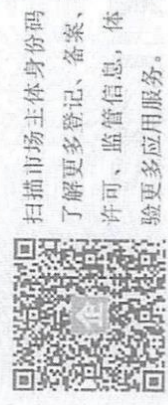 扫描市场主体身份码
了解更多登记、备案、
许可、监管信息，体
验更多应用服务。